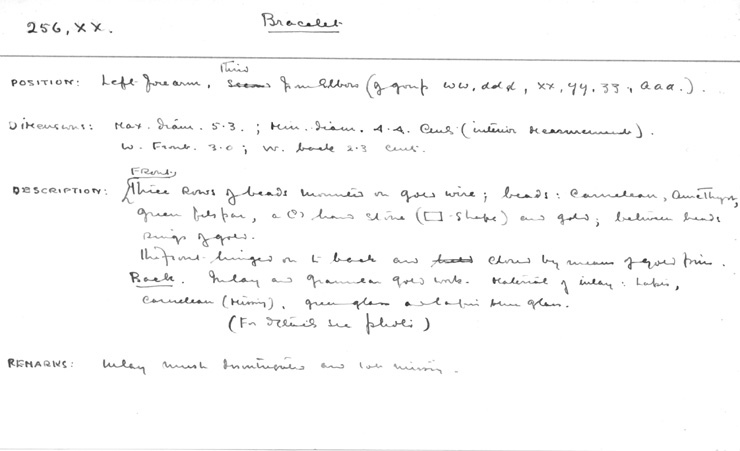 256, XX.
Bracelet
POSITION: Left forearm, Third from Elbow (of group WW, ddd, XX, YY, 33, aaa.).
DIMENSIONS: Max. diam. 5.3. ; Min. diam. 4.4. Cent. (interior measurements).
W. Front. 3.0 ; W. back 2.3 cent.
DESCRIPTION: Front, Three rows of beads mounted on gold wire ; beads : Carnelean, Amethyst,
green felspar, a (?) hard stone (▭-shape) and gold ; between beads
rings of gold.
The front hinged on to back and closed by means of gold pin.
Back. Inlay and granular gold work. Material of inlay : Lapis,
Carnelean (Mimic), green glass and lapis blue glass.
(For details see photo)
REMARKS: Inlay much disintegrated and missing.